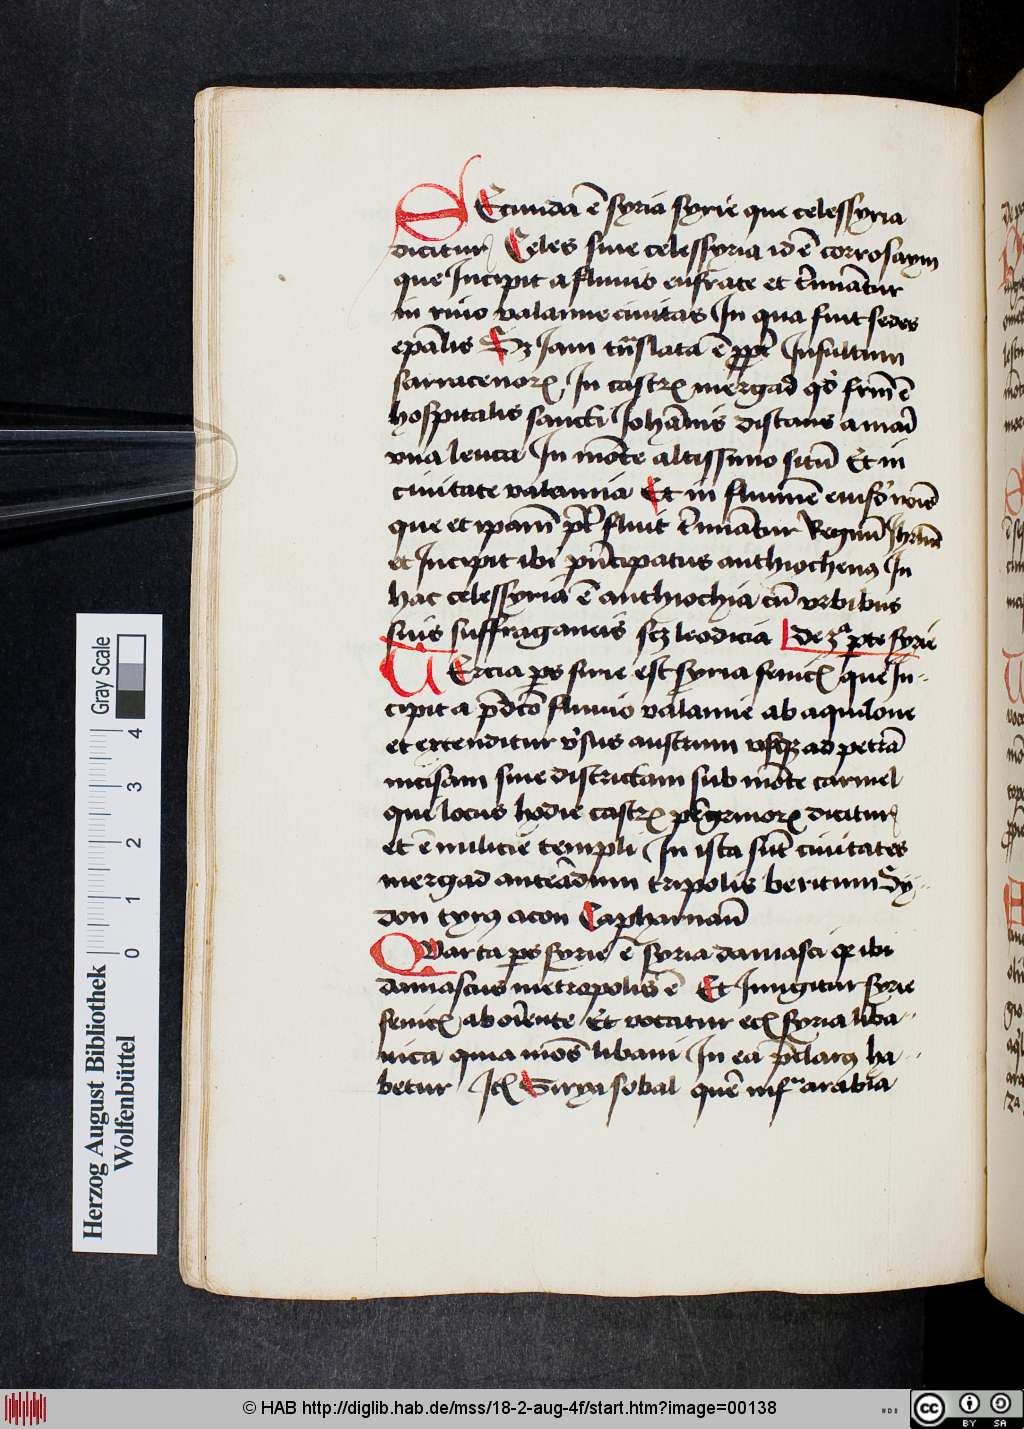 SEcunda ē syria syrie que celessyria
dicitur Celes siue celessyria id ē corrosaym
que Incipit a fluuio eufrate et t̄minātur
in riuo valanne ciuitas In qua fuit sedes
ep̄alis Sz Iam tn̄slata ē Insultum
sarracenorꝝ In castrꝝ mergad ē
hospitalis sancti Iohānis distans a mari
vna leuca In mōte altissimo sitū Et in
ciuitate valannia Et in flumīe
que et ipam fluit t̄minātur Regnū
et Incipit ibi pn̄cipatus anthiochenꝰ In
hac celessyria ē anthiochia cū vrbibus
suis suffraganeis scz leodicia de 3ª pte syrie
TErcia ps sirie est syria fenicꝭ que In-
cipit a pd̄co fluuio valanie ab aquilone
et extenditur v̄sus austrum vsqꝫ ad petrā
incisam siue districtam sub mōte carmel
que locus hodie castrꝝ pegrinorꝝ dicitur
et ē milicie templi In ista sūt ciuitates
mergad anteādum tripolis beritum Sy-
don tyrꝰ acon Capharnaū
QVarta ps syrie ē syria damasci qꝛ ibi
damascus metropolis ē Et Iungitur syrie
fenicꝭ ab oriente Et vocatur syria liba-
nica quia mōs libani In ea p̄clarꝰ ha-
betur Itꝭ Sirya sobal arabia
Herzog August Bibliothek
Wolfenbüttel
Gray Scale
0 1 2 3 4
© HAB http://diglib.hab.de/mss/18-2-aug-4f/start.htm?image=00138
cc BY SA